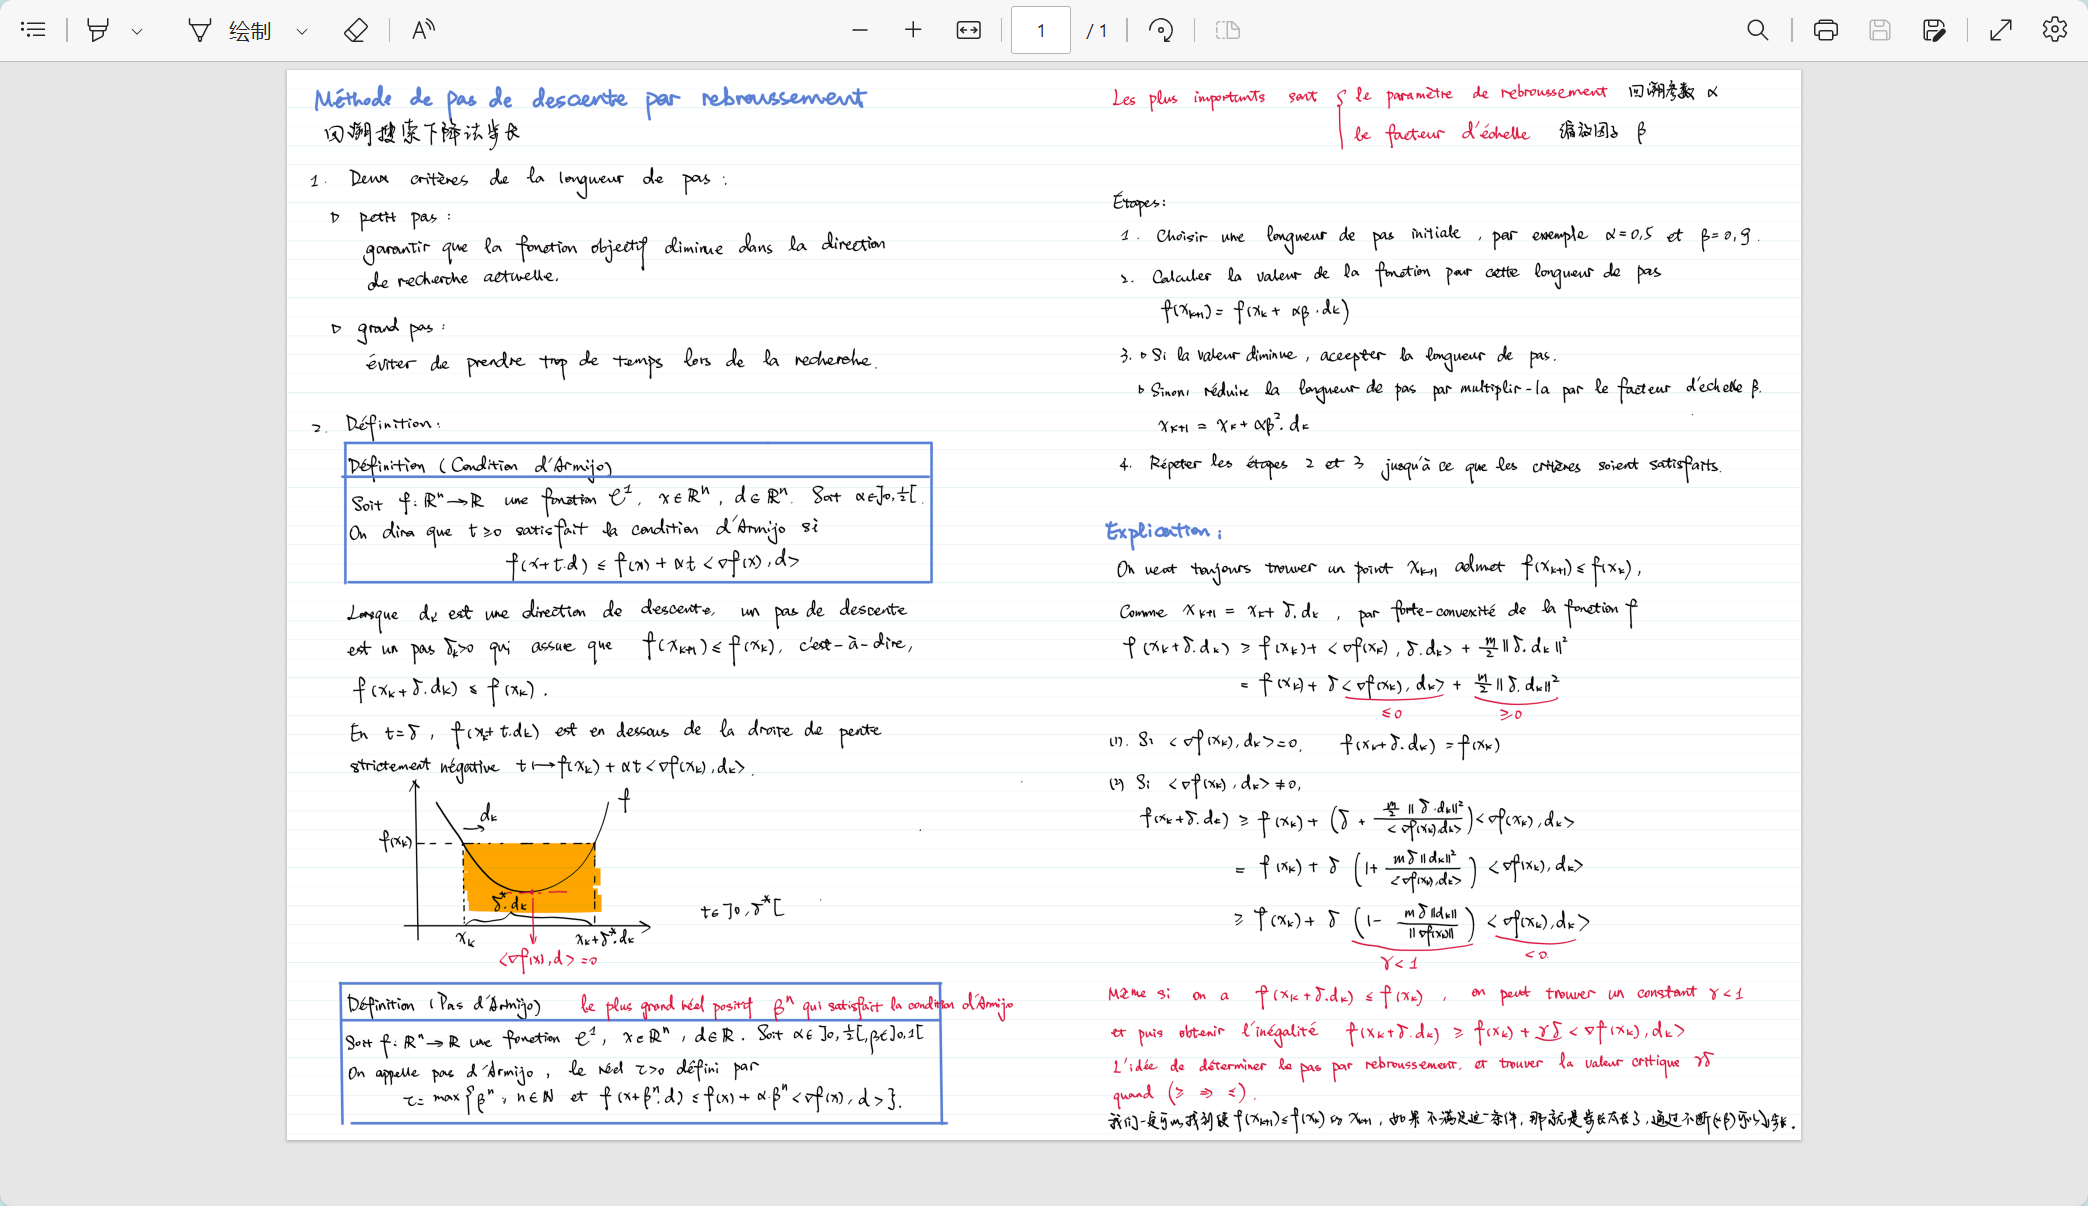 绘制
1 / 1
Méthode de pas de descente par rebroussement
回溯搜索下降法步长
1. Deux critères de la longueur de pas :
▷ petit pas :
garantir que la fonction objectif diminue dans la direction
de recherche actuelle.
▷ grand pas :
éviter de prendre trop de temps lors de la recherche.
2. Définition :
Définition (Condition d'Armijo)
Soit f: ℝⁿ → ℝ une fonction C¹, x∈ℝⁿ, d∈ℝⁿ. Soit α∈]0,½[.
On dira que t≥0 satisfait la condition d'Armijo si
f(x+t.d) ≤ f(x) + αt <∇f(x), d>
Lorsque dₖ est une direction de descente, un pas de descente
est un pas δₖ>0 qui assure que f(xₖ₊₁) ≤ f(xₖ), c'est-à-dire,
f(xₖ+δ.dₖ) ≤ f(xₖ).
En t=δ, f(xₖ+t.dₖ) est en dessous de la droite de pente
strictement négative t↦f(xₖ)+αt<∇f(xₖ),dₖ>.
dₖ
f
f(xₖ)
δ*.dₖ
t∈]0,δ*[
xₖ
xₖ+δ*.dₖ
<∇f(x),d>=0
Définition (Pas d'Armijo) le plus grand réel positif βⁿ qui satisfait la condition d'Armijo
Soit f: ℝⁿ→ℝ une fonction C¹, x∈ℝⁿ, d∈ℝ. Soit α∈]0,½[, β∈]0,1[
On appelle pas d'Armijo, le réel τ>0 défini par
τ= max{βⁿ, n∈ℕ et f(x+βⁿ.d) ≤ f(x)+α.βⁿ<∇f(x), d>}.
Les plus importants sont { le paramètre de rebroussement 回溯参数 α
le facteur d'échelle 缩放因子 β
Étapes:
1. Choisir une longueur de pas initiale, par exemple α=0,5 et β=0,9.
2. Calculer la valeur de la fonction pour cette longueur de pas
f(xₖ₊₁) = f(xₖ + αβ.dₖ)
3. ▷ Si la valeur diminue, accepter la longueur de pas.
▷ Sinon, réduire la longueur de pas par multiplir-la par le facteur d'échelle β.
xₖ₊₁ = xₖ+αβ².dₖ
4. Répeter les étapes 2 et 3 jusqu'à ce que les critères soient satisfaits.
Explication :
On veut toujours trouver un point xₖ₊₁ admet f(xₖ₊₁) ≤ f(xₖ),
Comme xₖ₊₁ = xₖ+δ.dₖ, par forte-convexité de la fonction f
f(xₖ+δ.dₖ) ≥ f(xₖ)+<∇f(xₖ), δ.dₖ> + m/2 ‖δ.dₖ‖²
= f(xₖ)+ δ<∇f(xₖ), dₖ> + m/2 ‖δ.dₖ‖²
≤0 ≥0
(1). Si <∇f(xₖ),dₖ>=0, f(xₖ+δ.dₖ) = f(xₖ)
(2) Si <∇f(xₖ), dₖ> ≠0,
f(xₖ+δ.dₖ) ≥ f(xₖ)+ (δ + (m/2 ‖δ.dₖ‖²)/(<∇f(xₖ),dₖ>)) <∇f(xₖ), dₖ>
= f(xₖ)+ δ (1+ (mδ‖dₖ‖²)/(<∇f(xₖ),dₖ>)) <∇f(xₖ), dₖ>
≥ f(xₖ)+ δ (1- (mδ‖dₖ‖)/(‖∇f(xₖ)‖)) <∇f(xₖ),dₖ>
γ<1 <0
Même si on a f(xₖ+δ.dₖ) ≤ f(xₖ), on peut trouver un constant γ<1
et puis obtenir l'inégalité f(xₖ+δ.dₖ) ≥ f(xₖ)+γδ<∇f(xₖ),dₖ>
L'idée de déterminer le pas par rebroussement, et trouver la valeur critique γδ
quand (≥ ⇒ ≤).
我们一定可以找到使f(xₖ₊₁)≤f(xₖ)的xₖ₊₁，如果不满足这一条件，那就是步长太长了，通过不断(×β)可以步长.